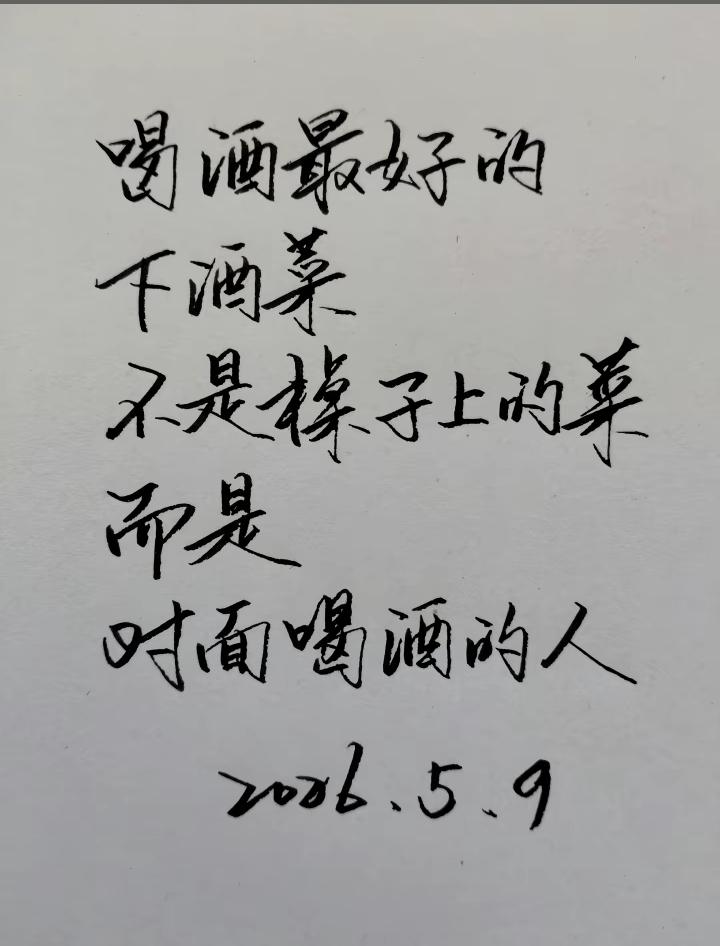 喝酒最好的
下酒菜
不是槕子上的菜
而是
对面喝酒的人
2026.5.9